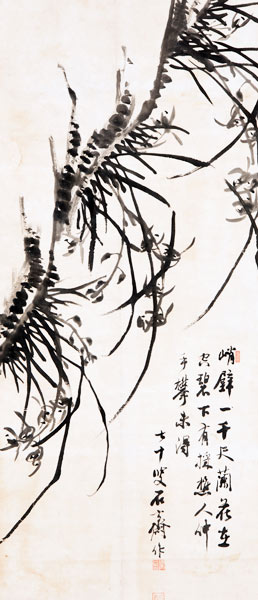 峭壁一千尺蘭花在
空碧下有採樵人伸
手攀未得
七十叟石齋作